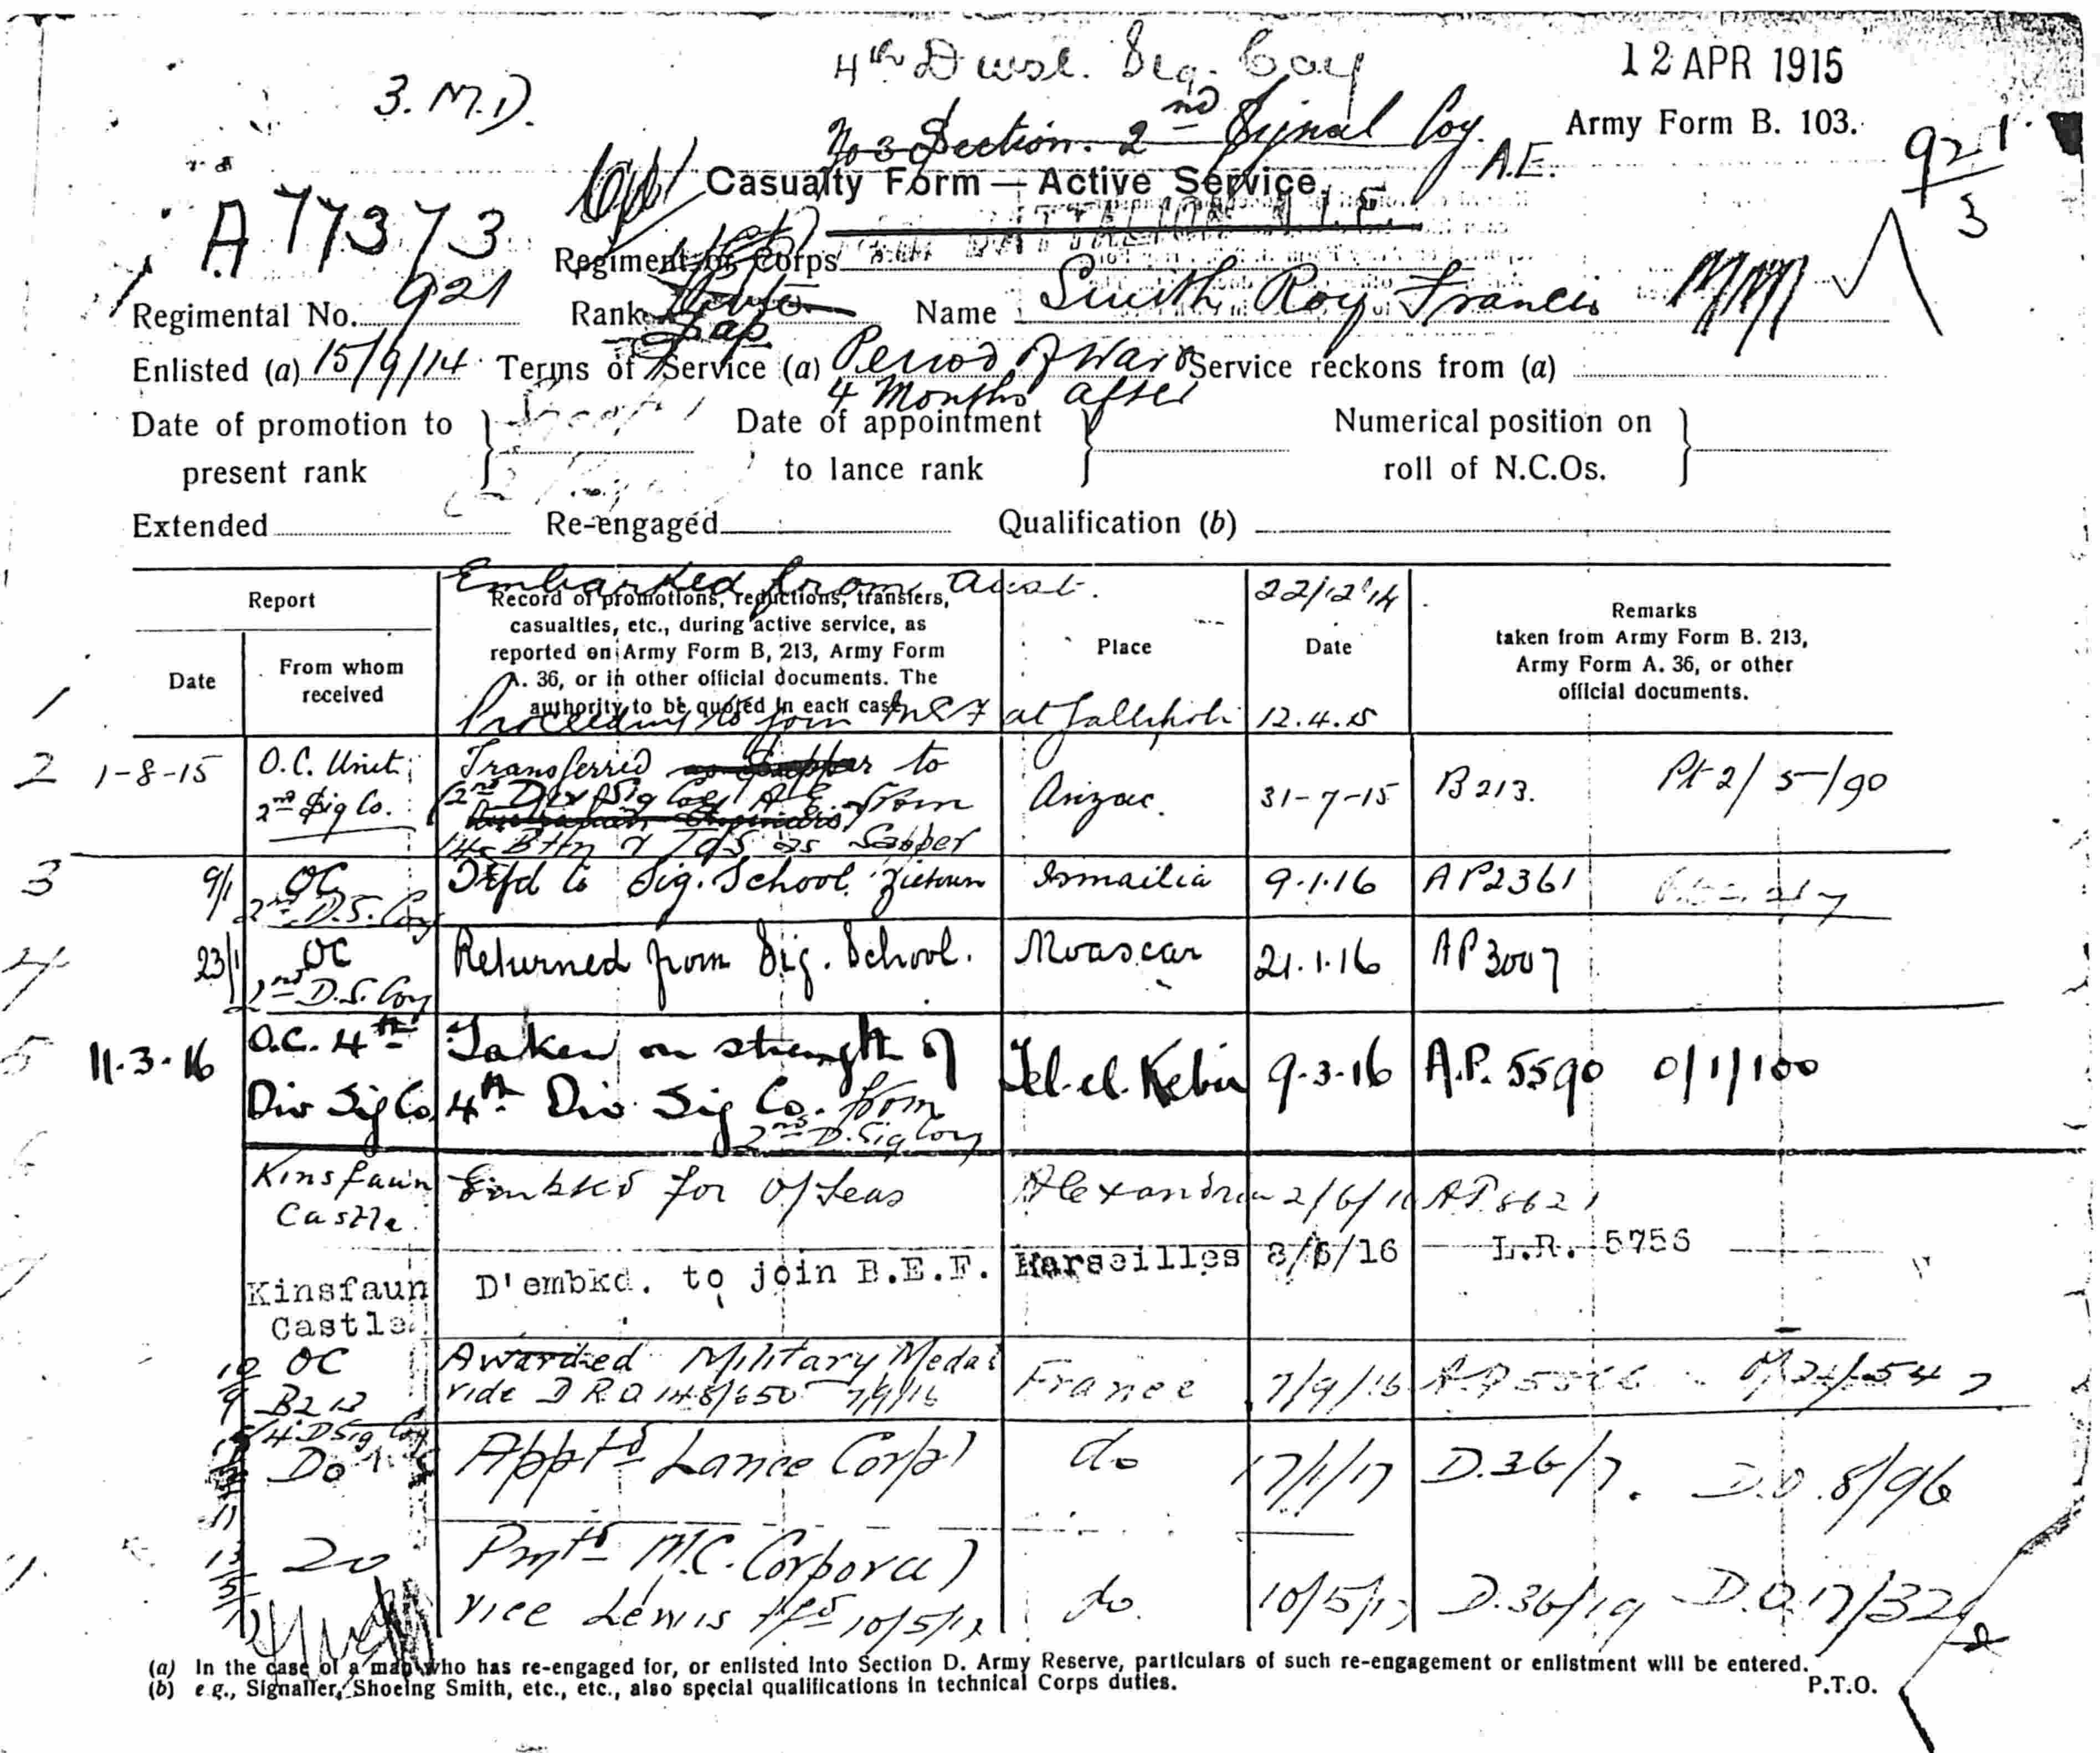 4th Divsl. Sig. Coy
12 APR 1915
3. M.D.
No 3 Section. 2nd Signal Coy. A.E.
Army Form B. 103.
921
3
Casualty Form — Active Service.
A 77373
BATTALION A.I.F.
Regiment or Corps
Regimental No. 921 Rank Sap Name Smith Roy Francis MM
Enlisted (a) 15/9/14 Terms of Service (a) Period of War & Service reckons from (a)
4 Months after
Date of promotion to present rank
Date of appointment to lance rank
Numerical position on roll of N.C.Os.
Extended Re-engaged Qualification (b)
Embarked from Aust. 22/12/14
Report
Date
From whom received
Record of promotions, reductions, transfers,
casualties, etc., during active service, as
reported on Army Form B, 213, Army Form
A. 36, or in other official documents. The
authority to be quoted in each case.
Place
Date
Remarks
taken from Army Form B. 213,
Army Form A. 36, or other
official documents.
1 Proceeding to join MEF at Gallipoli 12.4.15
2 1-8-15 O.C. Unit Transferred as Sapper to
2nd Sig Co. 2nd Div Sig Coy A.E. from
Australian Engineers
14 Bttn & TOS as Sapper
Anzac. 31-7-15 B213. Pt 2/ 5-/90
3 9/1 OC 2nd D.S. Coy Trfd to Sig. School Zietoun Ismailia 9.1.16 AP2361
4 23/1 OC 2nd D.S. Coy Returned from Sig. School. Moascar 21.1.16 AP3007
5 11.3.16 O.C. 4th Taken on strength of Tel.el.Kebir 9.3.16 A.P. 5590 0/1/100
Div Sig Co 4th Div Sig Co. from
2nd D. Sig Coy
6 Kinsfaun Castle Embkd for O/Seas Alexandria 2/6/16 AP.8621
7 Kinsfaun Castle D'embkd. to join B.E.F. Marseilles 8/6/16 L.R. 5756
10/9 OC B213 Awarded Military Medal
4 D Sig Coy vide D R O 148/650 7/9/16 France 7/9/16
Do Apptd Lance Corpl do 17/1/17 D.36/7. D.O. 8/96
Do Pmtd M.C. Corporal
vice Lewis 10/5/17 do. 10/5/17 D.36/19 D.O 17/32
(a) In the case of a man who has re-engaged for, or enlisted into Section D. Army Reserve, particulars of such re-engagement or enlistment will be entered.
(b) e.g., Signaller, Shoeing Smith, etc., etc., also special qualifications in technical Corps duties.
P.T.O.